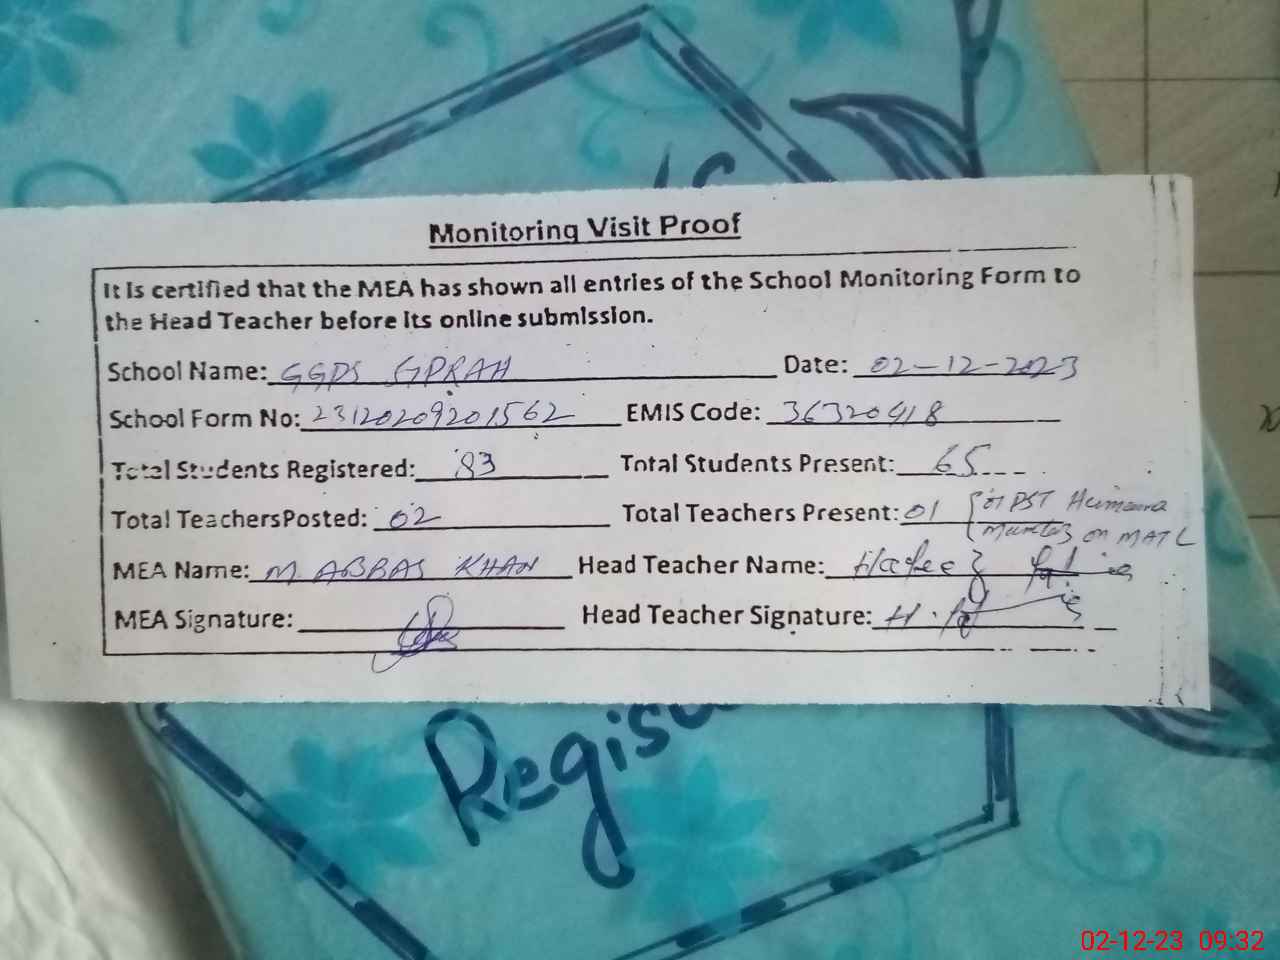 Monitoring Visit Proof
It is certified that the MEA has shown all entries of the School Monitoring Form to
the Head Teacher before its online submission.
School Name: GGPS GPRAH Date: 02-12-2023
School Form No: 23120209201562 EMIS Code: 36320418
Total Students Registered: 83 Total Students Present: 65
Total TeachersPosted: 02 Total Teachers Present: 01 01 PST Humaira
Mumtaz on MATL
MEA Name: M. ABBAS KHAN Head Teacher Name: Hafeez
MEA Signature: Head Teacher Signature: H.
Regis
02-12-23 09:32